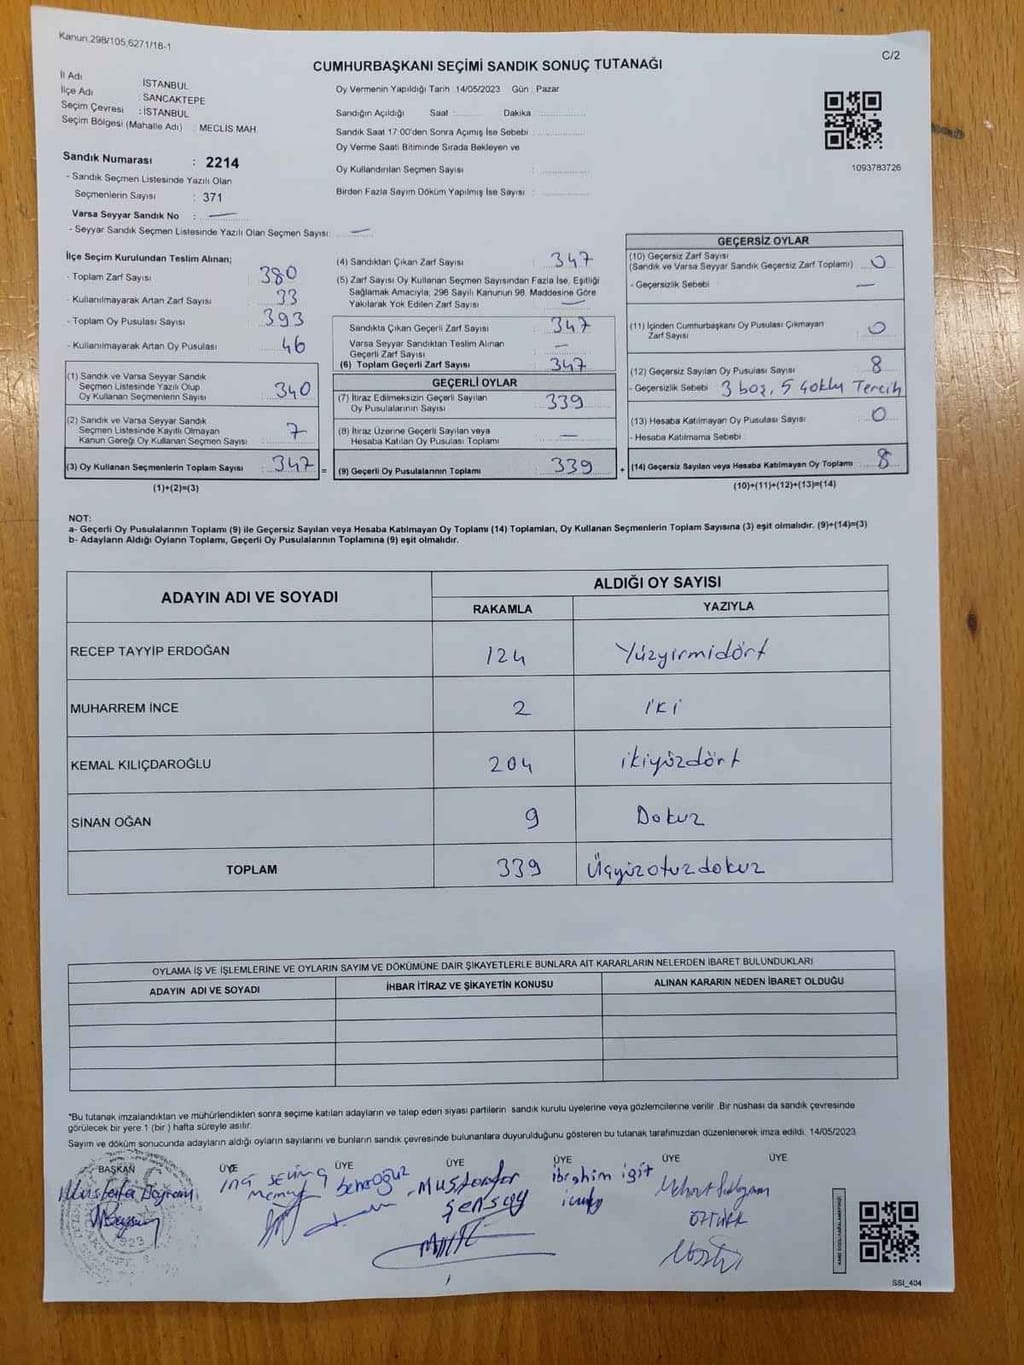 Kanun,298/105,6271/18-1
C/2
CUMHURBAŞKANI SEÇİMİ SANDIK SONUÇ TUTANAĞI
İl Adı : İSTANBUL
İlçe Adı : SANCAKTEPE
Seçim Çevresi : İSTANBUL
Seçim Bölgesi (Mahalle Adı) : MECLİS MAH.
Sandık Numarası : 2214
- Sandık Seçmen Listesinde Yazılı Olan
Seçmenlerin Sayısı : 371
Varsa Seyyar Sandık No : —
- Seyyar Sandık Seçmen Listesinde Yazılı Olan Seçmen Sayısı: —
Oy Vermenin Yapıldığı Tarih 14/05/2023 Gün : Pazar
Sandığın Açıldığı Saat : Dakika
Sandık Saat 17:00'den Sonra Açımış İse Sebebi :
Oy Verme Saati Bitiminde Sırada Bekleyen ve
Oy Kullandırılan Seçmen Sayısı :
Birden Fazla Sayım Döküm Yapılmış İse Sayısı :
1093783726
İlçe Seçim Kurulundan Teslim Alınan;
- Toplam Zarf Sayısı 380
- Kullanılmayarak Artan Zarf Sayısı 33
- Toplam Oy Pusulası Sayısı 393
- Kullanılmayarak Artan Oy Pusulası 46
(1) Sandık ve Varsa Seyyar Sandık
Seçmen Listesinde Yazılı Olup
Oy Kullanan Seçmenlerin Sayısı 340
(2) Sandık ve Varsa Seyyar Sandık
Seçmen Listesinde Kayıtlı Olmayan
Kanun Gereği Oy Kullanan Seçmen Sayısı 7
(3) Oy Kullanan Seçmenlerin Toplam Sayısı 347 =
(1)+(2)=(3)
(4) Sandıktan Çıkan Zarf Sayısı 347
(5) Zarf Sayısı Oy Kullanan Seçmen Sayısından Fazla İse, Eşitliği
Sağlamak Amacıyla; 298 Sayılı Kanunun 98. Maddesine Göre
Yakılarak Yok Edilen Zarf Sayısı —
Sandıkta Çıkan Geçerli Zarf Sayısı 347
Varsa Seyyar Sandıktan Teslim Alınan
Geçerli Zarf Sayısı —
(6) Toplam Geçerli Zarf Sayısı 347
GEÇERLİ OYLAR
(7) İtiraz Edilmeksizin Geçerli Sayılan
Oy Pusulalarının Sayısı 339
(8) İtiraz Üzerine Geçerli Sayılan veya
Hesaba Katılan Oy Pusulası Toplamı —
(9) Geçerli Oy Pusulalarının Toplamı 339 +
GEÇERSİZ OYLAR
(10) Geçersiz Zarf Sayısı
(Sandık ve Varsa Seyyar Sandık Geçersiz Zarf Toplamı) 0
- Geçersizlik Sebebi —
(11) İçinden Cumhurbaşkanı Oy Pusulası Çıkmayan
Zarf Sayısı 0
(12) Geçersiz Sayılan Oy Pusulası Sayısı 8
- Geçersizlik Sebebi 3 boş, 5 çoklu Tercih
(13) Hesaba Katılmayan Oy Pusulası Sayısı 0
- Hesaba Katılmama Sebebi :
(14) Geçersiz Sayılan veya Hesaba Katılmayan Oy Toplamı 8
(10)+(11)+(12)+(13)=(14)
NOT:
a- Geçerli Oy Pusulalarının Toplamı (9) ile Geçersiz Sayılan veya Hesaba Katılmayan Oy Toplamı (14) Toplamları, Oy Kullanan Seçmenlerin Toplam Sayısına (3) eşit olmalıdır. (9)+(14)=(3)
b- Adayların Aldığı Oyların Toplamı, Geçerli Oy Pusulalarının Toplamına (9) eşit olmalıdır.
ADAYIN ADI VE SOYADI
ALDIĞI OY SAYISI
RAKAMLA YAZIYLA
RECEP TAYYİP ERDOĞAN 124 Yüzyirmidört
MUHARREM İNCE 2 iki
KEMAL KILIÇDAROĞLU 204 ikiyüzdört
SİNAN OĞAN 9 Dokuz
TOPLAM 339 Üçyüzotuzdokuz
OYLAMA İŞ VE İŞLEMLERİNE VE OYLARIN SAYIM VE DÖKÜMÜNE DAİR ŞİKAYETLERLE BUNLARA AİT KARARLARIN NELERDEN İBARET BULUNDUKLARI
ADAYIN ADI VE SOYADI İHBAR İTİRAZ VE ŞİKAYETİN KONUSU ALINAN KARARIN NEDEN İBARET OLDUĞU
*Bu tutanak imzalandıktan ve mühürlendikten sonra seçime katılan adayların ve talep eden siyasi partilerin sandık kurulu üyelerine veya gözlemcilerine verilir. Bir nüshası da sandık çevresinde
görülecek bir yere 1 (bir) hafta süreyle asılır.
Sayım ve döküm sonucunda adayların aldığı oyların sayılarını ve bunların sandık çevresinde bulunanlara duyurulduğunu gösteren bu tutanak tarafımızdan düzenlenerek imza edildi. 14/05/2023
BAŞKAN ÜYE ÜYE ÜYE ÜYE ÜYE ÜYE
Mustafa
Mustafa
Şensoy
ibrahim igit
Mehmet
ÖZTÜRK
923
SSI_404